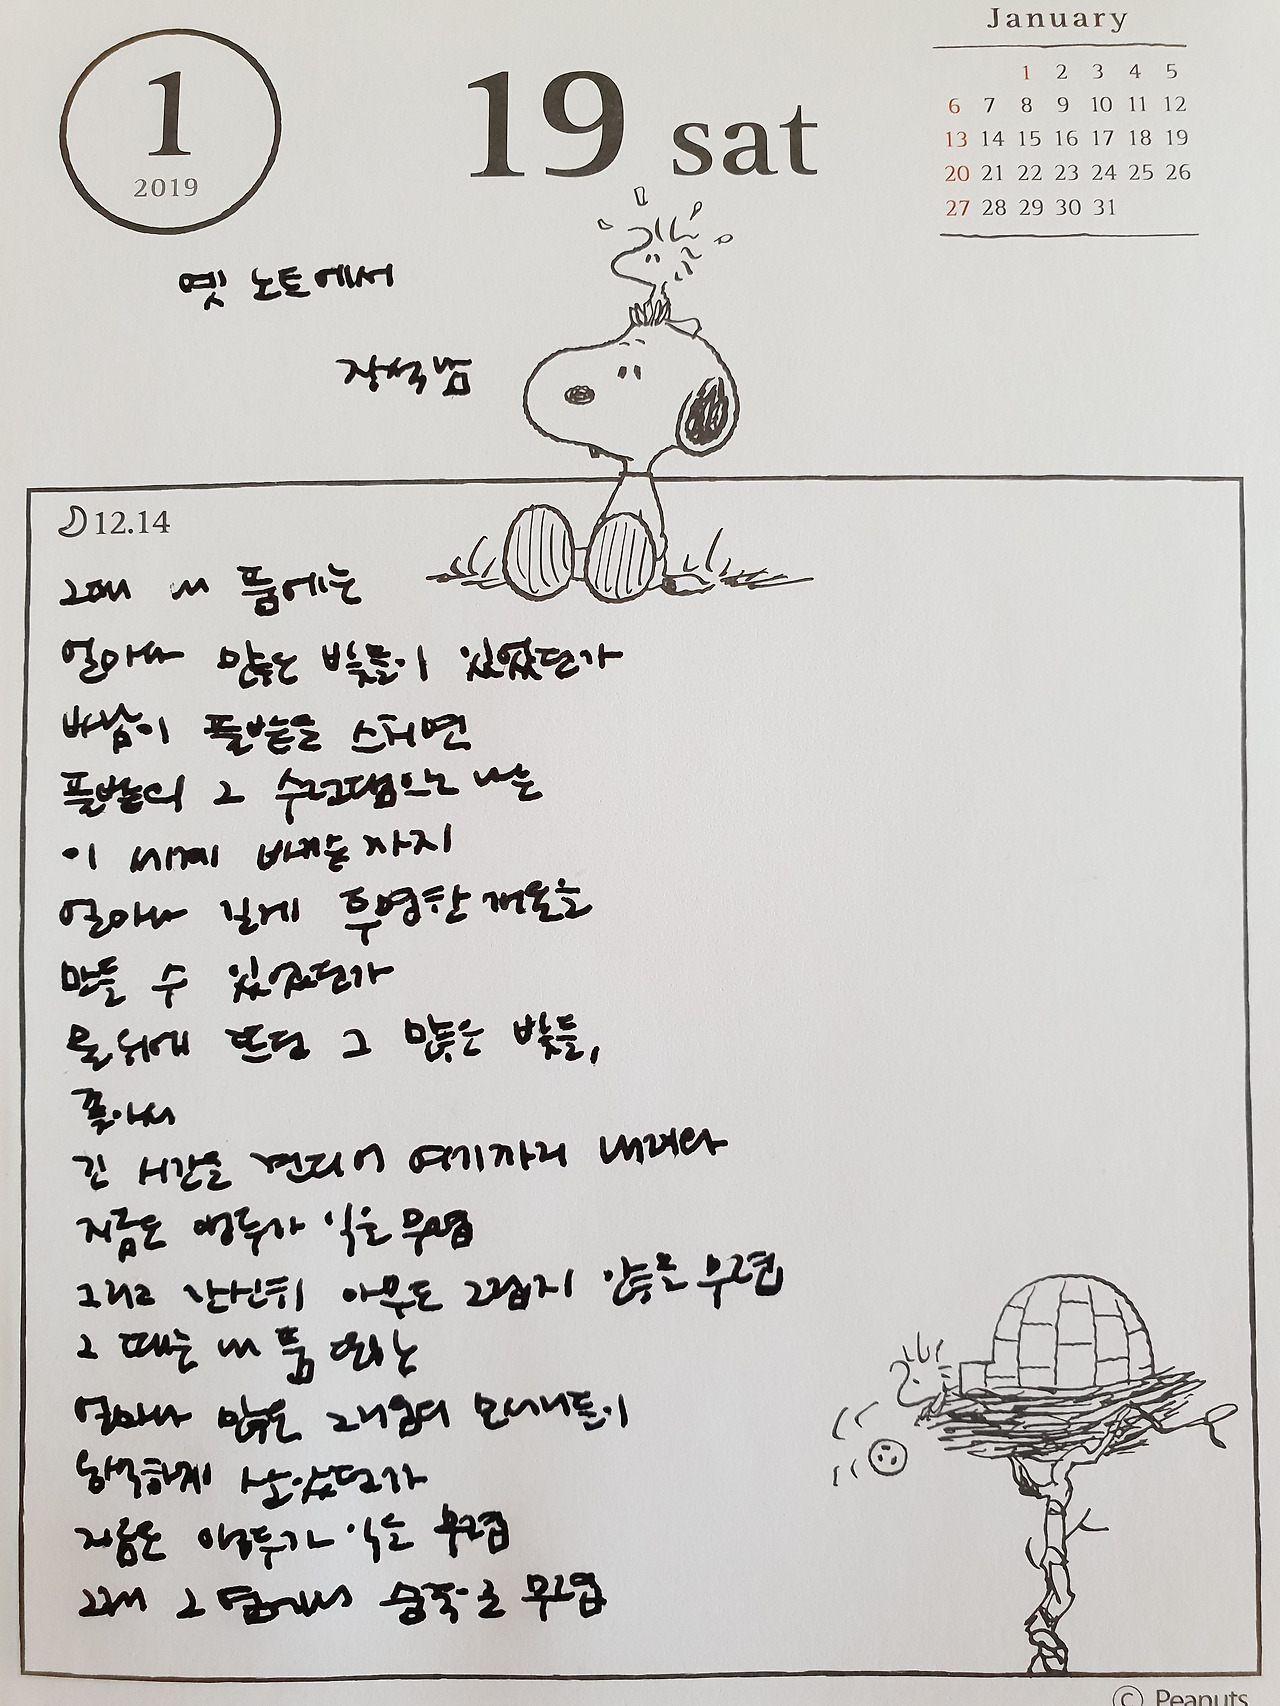 January
1 2 3 4 5
6 7 8 9 10 11 12
13 14 15 16 17 18 19
20 21 22 23 24 25 26
27 28 29 30 31
1
2019
19 sat
옛 노트에서
장석남
12.14
그때 내 품에는
얼마나 많은 빛들이 있었던가
바람이 풀밭을 스치면
풀밭의 그 수런댐으로 나는
이 세계 바깥까지
얼마나 길게 투명한 개울을
만들 수 있었던가
물 위에 뜨던 그 많은 빛들,
좇아서
긴 시간을 견디어 여기까지 내려와
지금은 앵두가 익을 무렵
그리고 간신히 아무도 그립지 않을 무렵
그 때는 내 품에는
얼마나 많은 그리움의 모서리들이
옹색하게 살았던가
지금은 앵두가 익을 무렵
그래 그 옆에서 숨죽일 무렵
© Peanuts